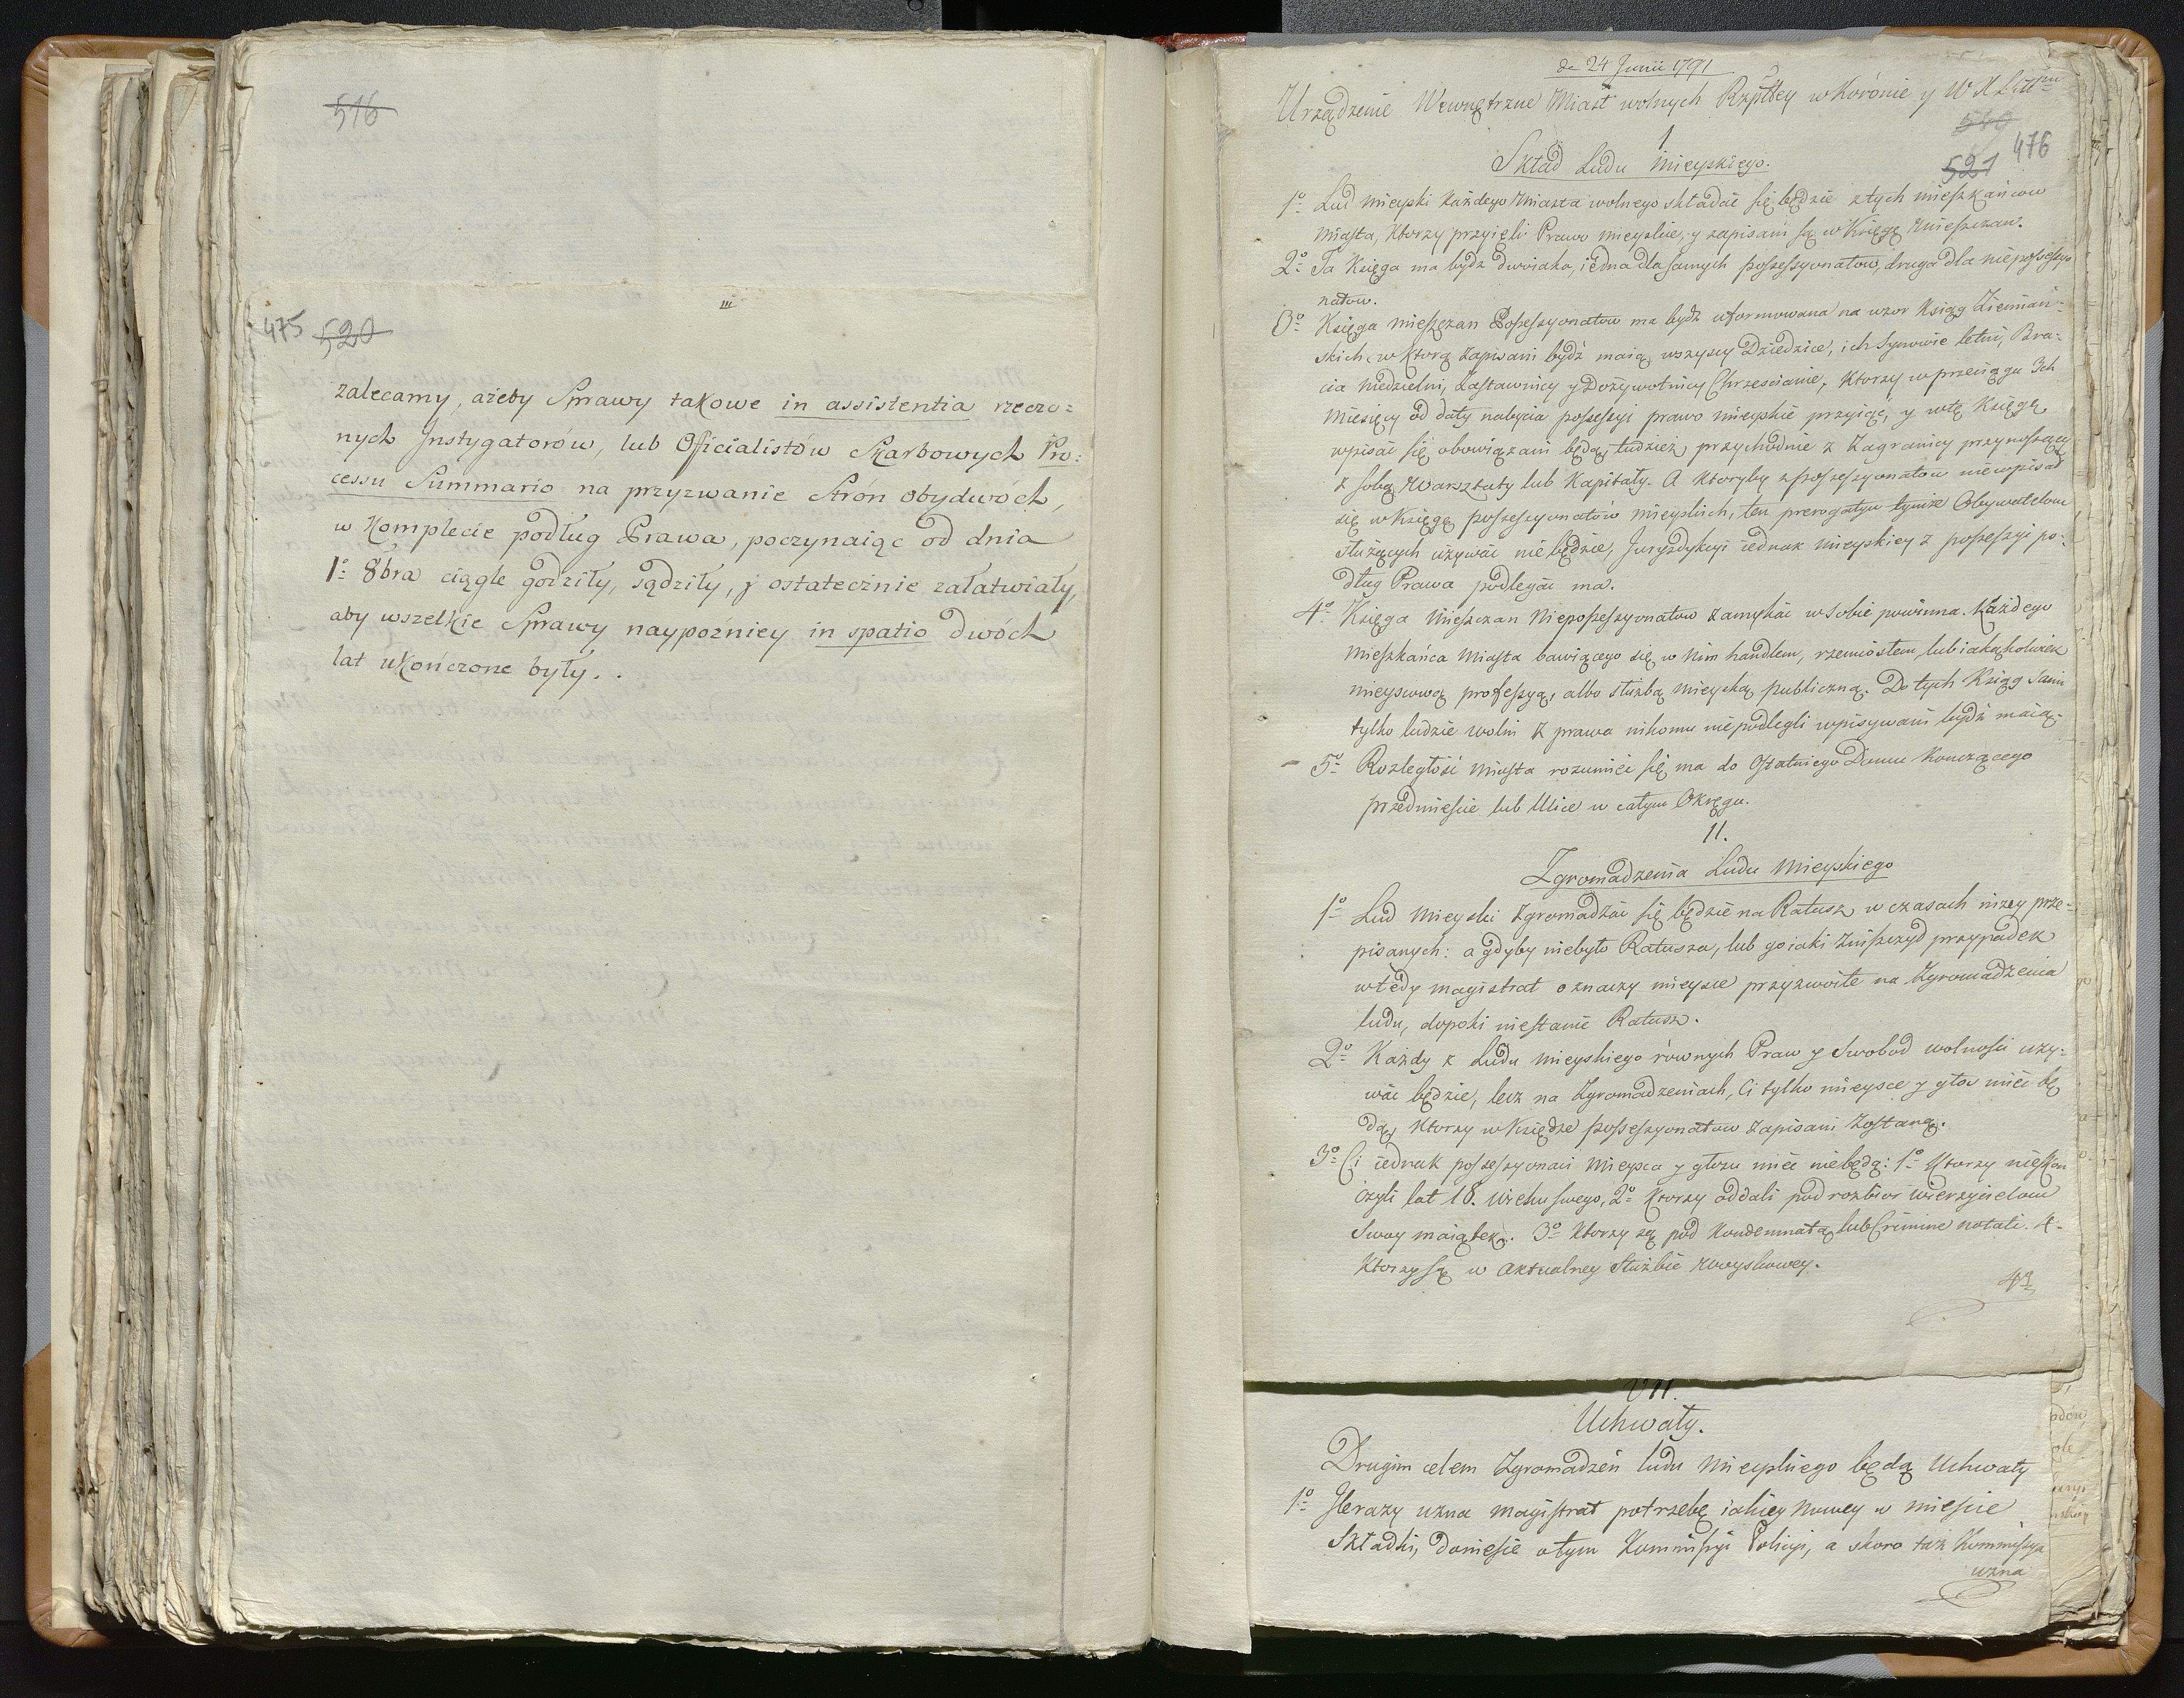 516
III
475 520
zalecamy, ażeby Sprawy takowe in assistentia rzeczo=
nych Instygatorów, lub Oficialistów Skarbowych Pro=
cessu Summario na przyzwanie Strón obydwóch,
w Komplecie podług Prawa, poczynaiąc od dnia
1o 8bra ciągle godziły, sądziły, y ostatecznie załatwiały,
aby wszelkie Sprawy naypoźniey in spatio dwóch
lat ukończone były.
de 24 Junii 1791
Urządzenie Wewnętrzne Miast wolnych Rzpltey w Koronie y W X Litt
540
476
521
1
Skład Ludu Mieyskiego.
1o Lud mieyski każdego Miasta wolnego składać się będzie z tych mieszkańcow
Miasta, ktorzy przyięli Prawo mieyskie, y zapisani są w Księgę Mieszczan.
2o Ta Księga ma bydz dwoiaka, iedna dla samych possessyonatow, druga dla niepossessyo
natow.
3o Księga mieszczan Possessyonatow ma bydz uformowana na wzor Ksiąg Ziemian=
skich, w ktorą zapisani bydź maią wszyscy Dziedzice, ich Synowie letni, Bra=
cia niedzielni, Zastawnicy y Dożywotnicy Chrzescianie, ktorzy w przeciągu 3ch
Miesięcy od daty nabycia possessyi prawo mieyskie przyiąć, y w tę Księgę
wpisać się obowiązani będą, tudzież przychodnie z Zagranicy przynoszący
z sobą Warsztaty lub Kapitały. A ktoryby z possessyonatow niewpisał
się w Księgę possessyonatów mieyskich, ten prerogatyw tymże Obywatelom
służących używać nie będzie, Juryzdykcyi iednak mieyskiey z possessyi po=
dług Prawa podlegać ma.
4o Księga Mieszczan Niepossessyonatow zamykać w sobie powinna każdego
Mieszkańca Miasta bawiącego się w nim handlem, rzemiosłem, lub iakąkolwiek
mieyscową professyą, albo służbą mieyską publiczną. Do tych Ksiąg sami
tylko ludzie wolni z prawa nikomu niepodlegli wpisywani bydź maią.
5o Rozległość Miasta rozumieć się ma do Ostatniego Domu Konczącego
przedmieście lub Ulice w całym Okręgu.
II.
Zgromadzenia Ludu Mieyskiego
1o Lud Mieyski zgromadzać się będzie na Ratusz w czasach niżey prze=
pisanych: a gdyby niebyło Ratusza, lub go iaki zniszczył przypadek
wtedy magistrat oznaczy mieysce przyzwoite na Zgromadzenia
ludu, dopoki niestanie Ratusz.
2o Każdy z Ludu mieyskiego rownych Praw y Swobod wolnosci uży=
wać będzie, lecz na Zgromadzeniach, Ci tylko mieysce y głos mieć bę
dą, ktorzy w Księdze possessyonatow zapisani zostaną.
3o Ci iednak possessyonaci mieysca y głosu mieć niebędą: 1o ktorzy nieskon
czyli lat 18. wieku swego, 2o Ktorzy oddali pod rozbior wierzycielom
Swoy maiątek. 3o Ktorzy są pod Kondemnatą lub Crimine notati. 4.
Ktorzy są w aktualney służbie woyskowey.
4o
VII.
Uchwały.
Drugim celem Zgromadzeń ludu Mieyskiego będą Uchwały
1o Ilerazy uzna magistrat potrzebę iakiey nowey w mieście
Składki, doniesie o tym Kommissyi Policyi, a skoro taż Kommissya
uzna